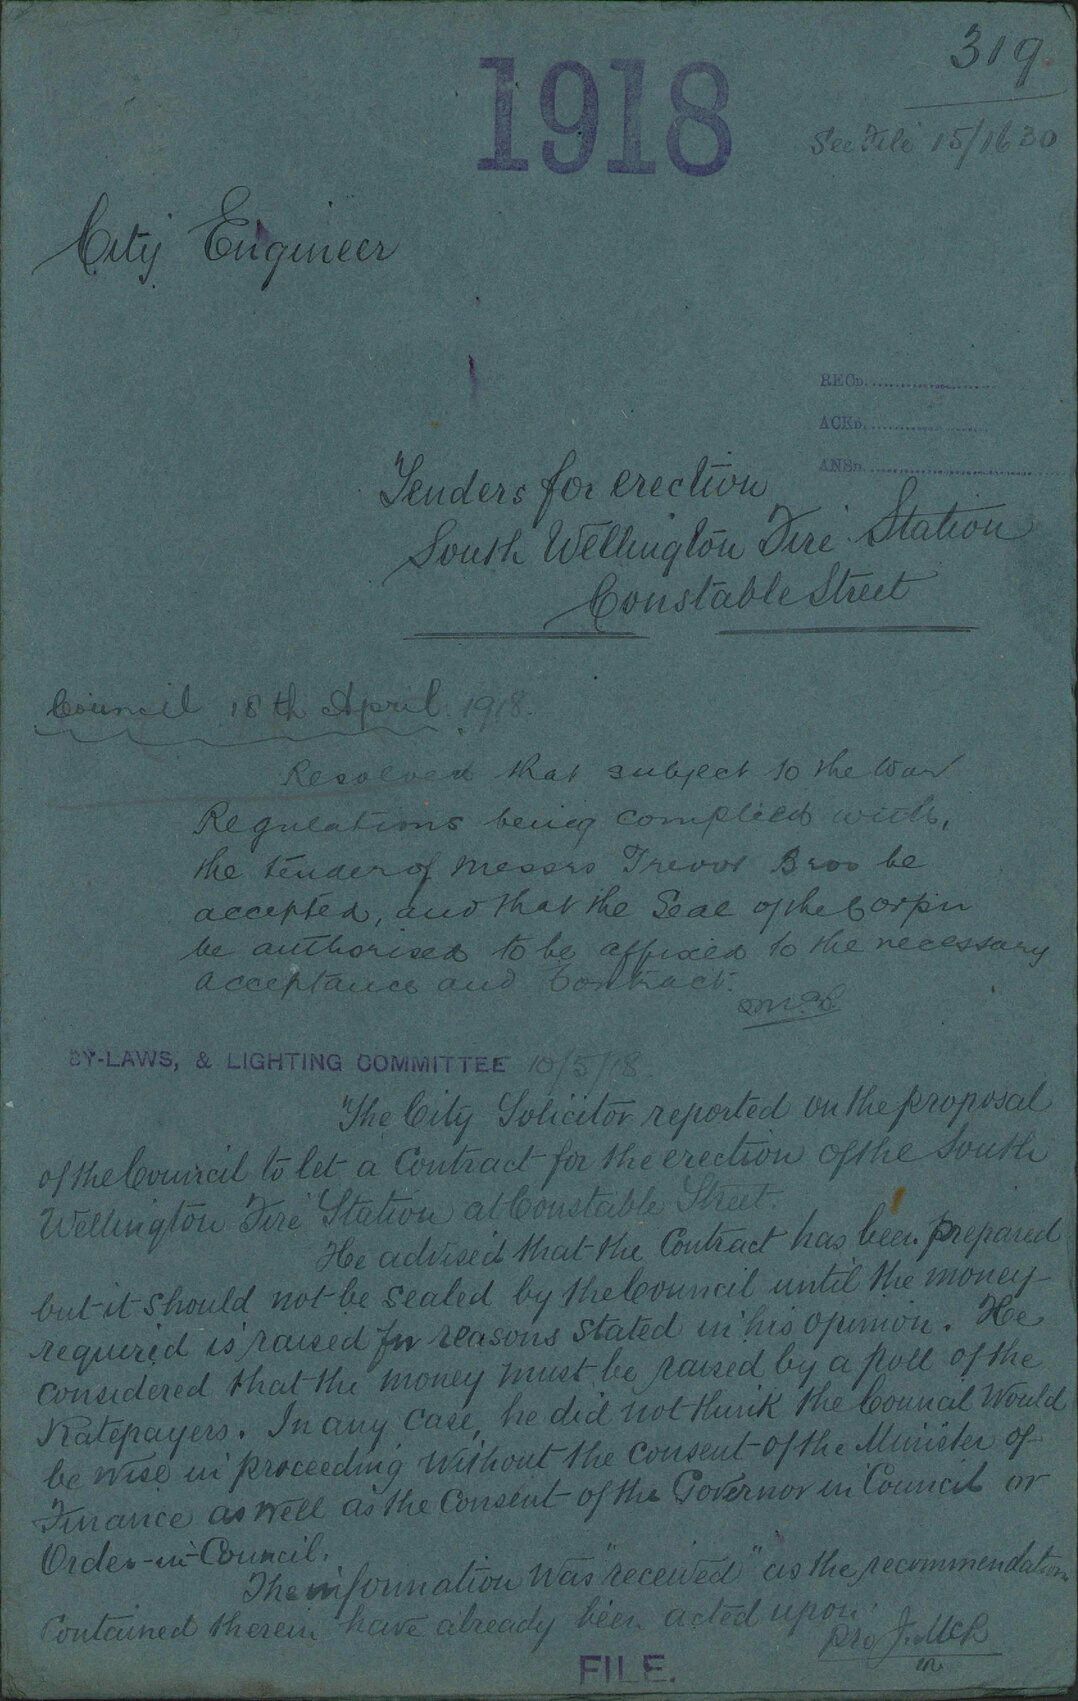 319
1918
See File 15/1630
City Engineer
RECD.
ACKD.
ANSD.
Tenders for erection
South Wellington Fire Station
Constable Street
Council 18th April 1918.
Resolved that subject to the War
Regulations being complied with,
the tender of Messrs Trevor Bros be
accepted, and that the Seal of the Corpn
be authorised to be affixed to the necessary
acceptance and Contract.
BY-LAWS, & LIGHTING COMMITTEE 10/5/18.
The City Solicitor reported on the proposal
of the Council to let a Contract for the erection of the South
Wellington Fire Station at Constable Street.
He advised that the Contract has been prepared
but it should not be sealed by the Council until the money
required is raised for reasons stated in his opinion. He
considered that the money must be raised by a poll of the
Ratepayers. In any case, he did not think the Council would
be wise in proceeding without the consent of the Minister of
Finance as well as the Consent of the Governor in Council or
Order-in-Council.
The information was "received" as the recommendation
contained therein have already been acted upon.
pro J. McR
FILE.